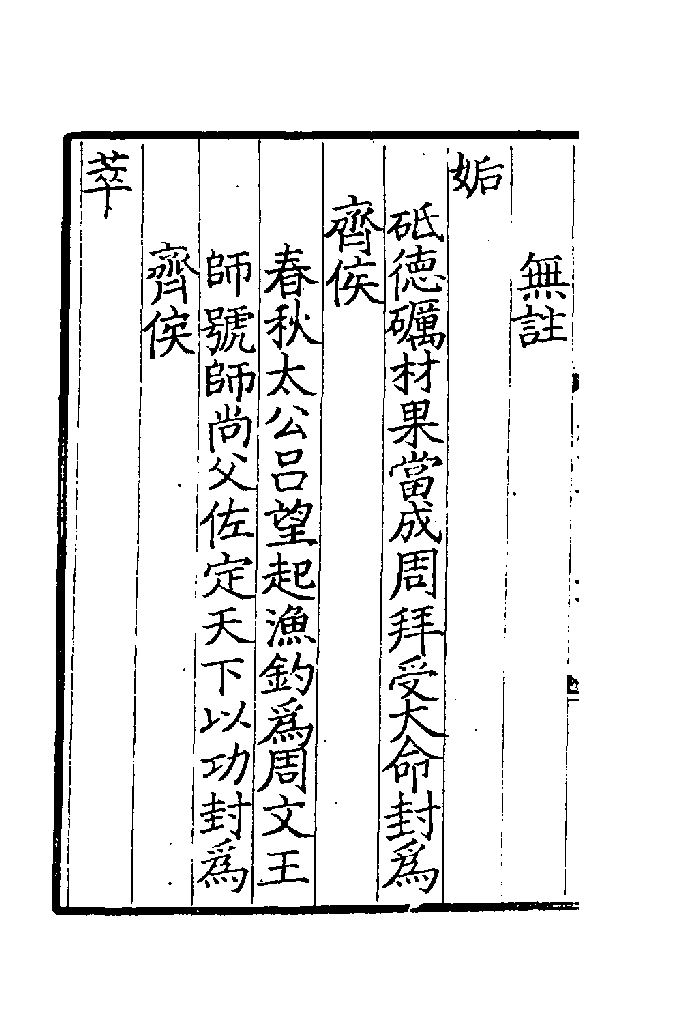 無註
姤
砥德礪材果當成周拜受大命封爲
齊侯
春秋太公呂望起漁釣爲周文王
師號師尚父佐定天下以功封爲
齊侯
萃